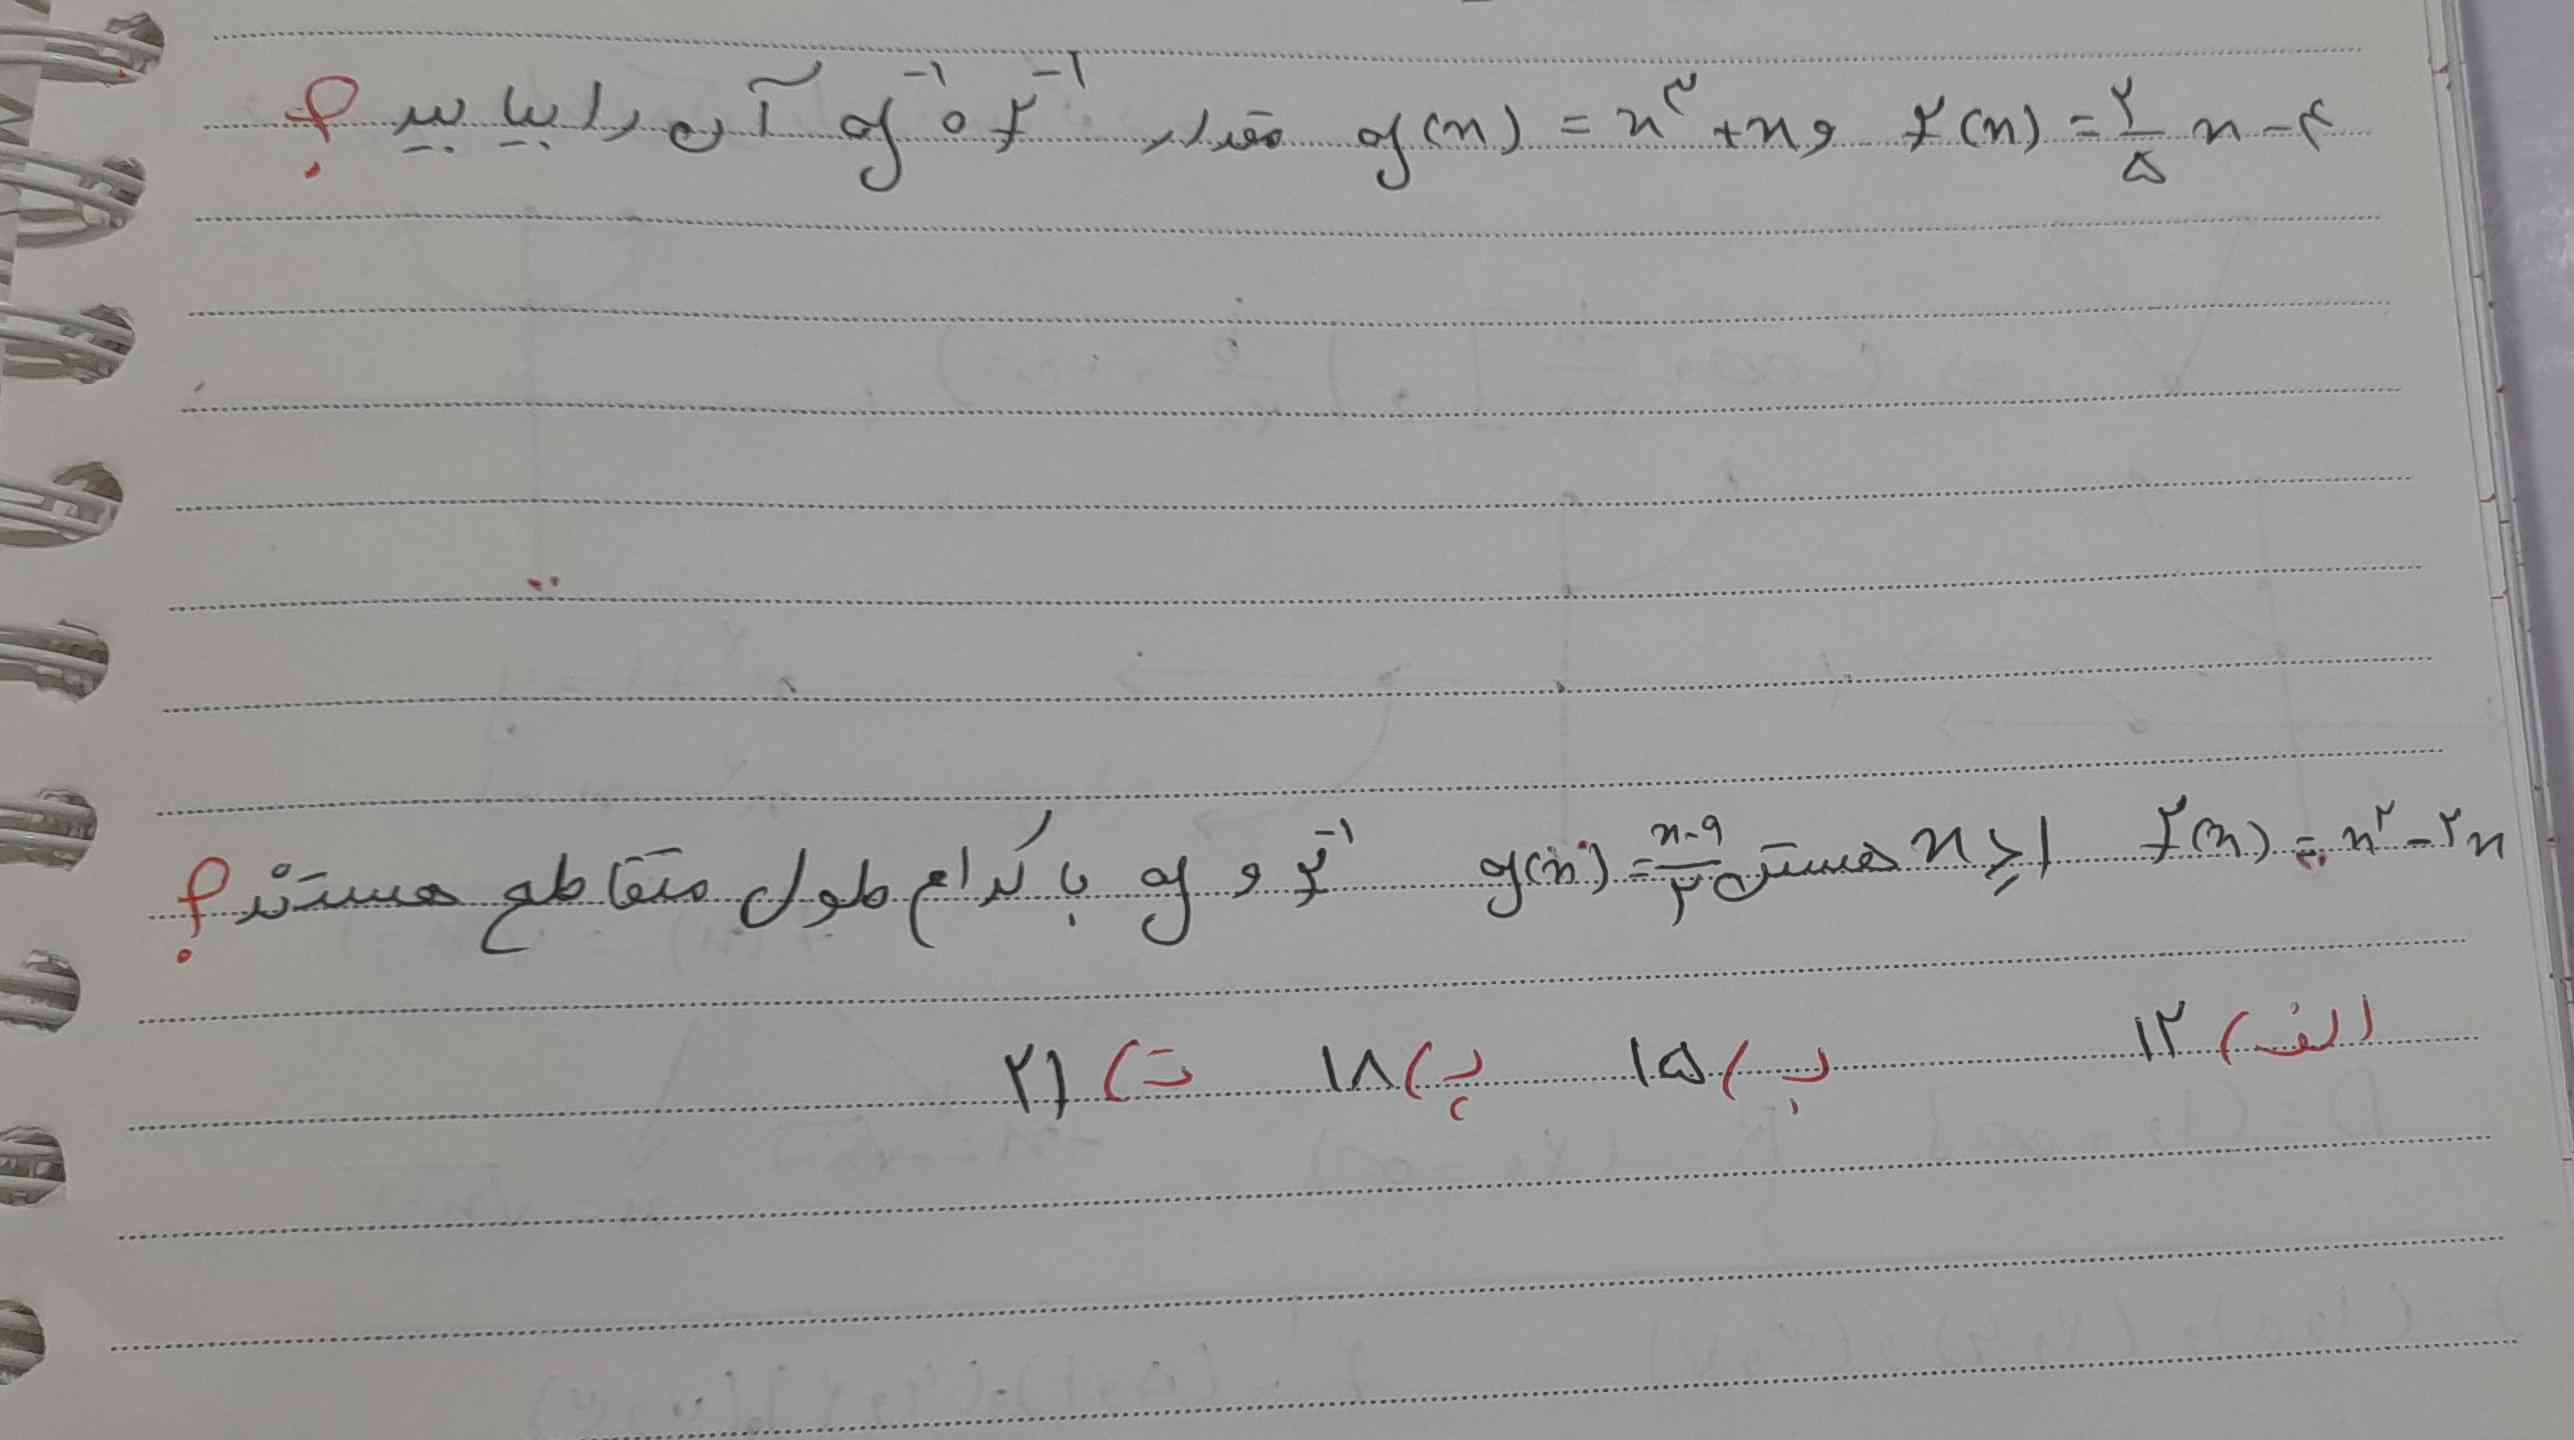 f(x) = ۲/۵ x - ۴ و g(x) = x³ + x مقدار g⁻¹ o f⁻¹ آن را بیابید ؟
f(x) = x² - ۲x x ≥ ۱ هستش g(x) = x-۹/۲ f⁻¹ و g با کدام طول متقاطع هستند ؟
الف) ۱۲ ب) ۱۵ پ) ۱۸ ت) ۲۱